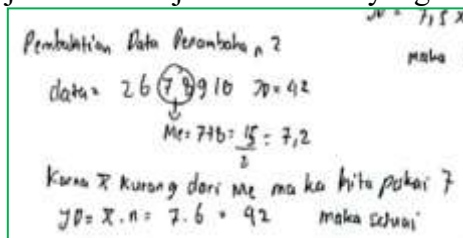 Pembuktian Data Penambahan 2
maka
data = 2 6 7 8 9 10 JD = 42
Me = 7+8 = 15/2 = 7,2
Karna x̄ kurang dari Me ma ka kita pakai 7
JD = x̄ . n = 7 . 6 = 42 maka sesuai